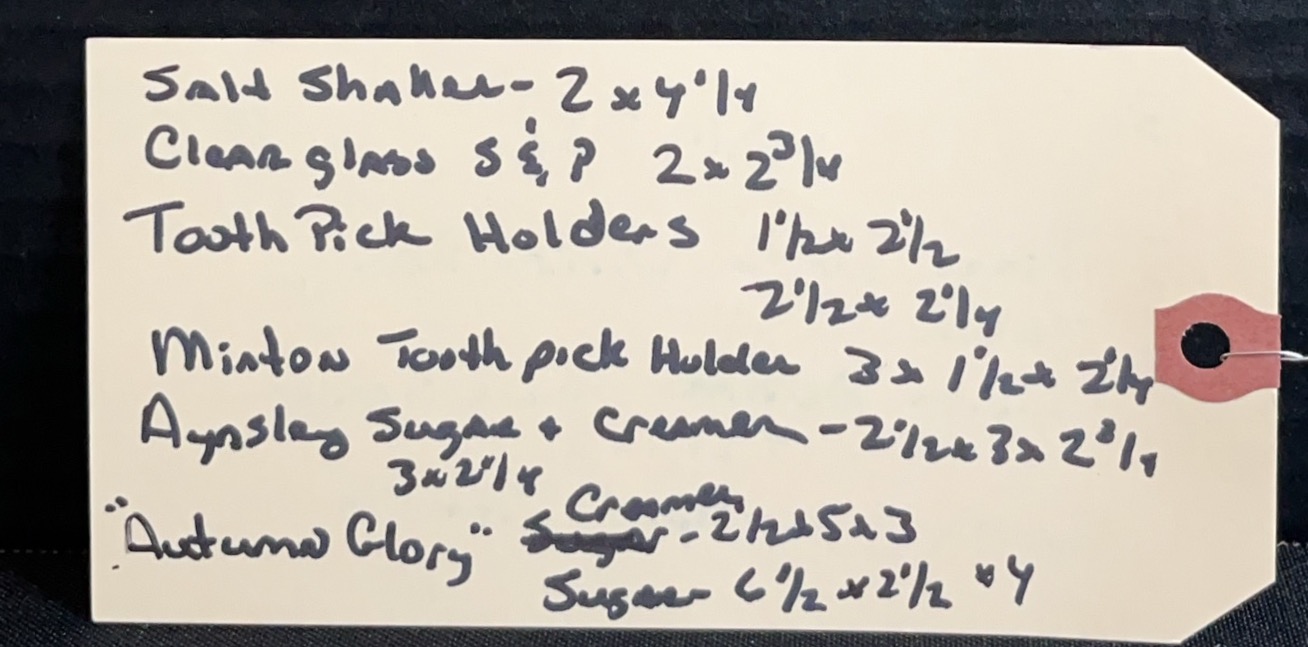 Salt Shaker - 2 x 4 1/4
Clear glass S & P 2 x 2 3/4
Tooth Pick Holders 1 1/2 x 2 1/2
2 1/2 x 2 1/4
Minton Tooth pick Holder 3 x 1 1/2 x 2 1/4
Aynsley Sugar + Creamer - 2 1/2 x 3 x 2 3/4
3 x 2 1/4
Creamer
"Autumn Glory" Sugar - 2 1/2 x 5 x 3
Sugar 6 1/2 x 2 1/2 x 4